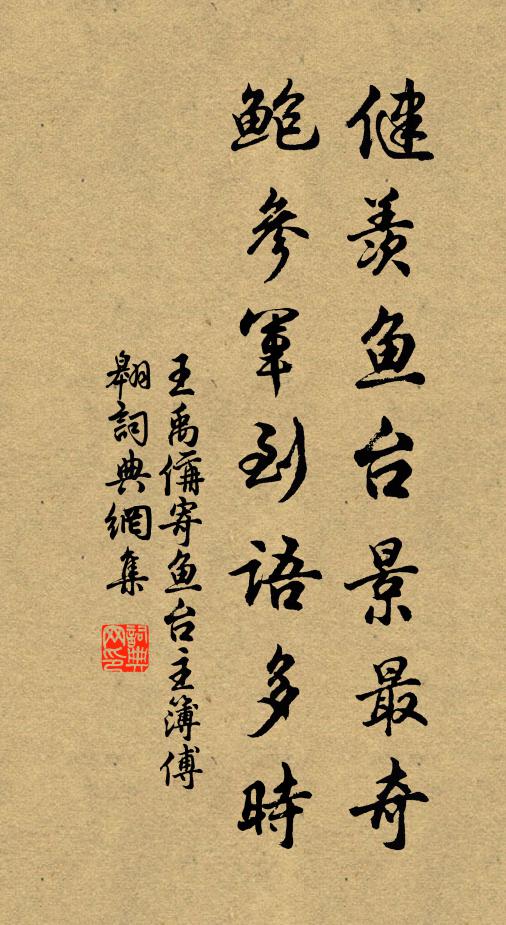 健羨鱼台景最奇
鲍参军到語多時
王禹偁寄鱼台主簿傅
翱詞典網集
詞典网印